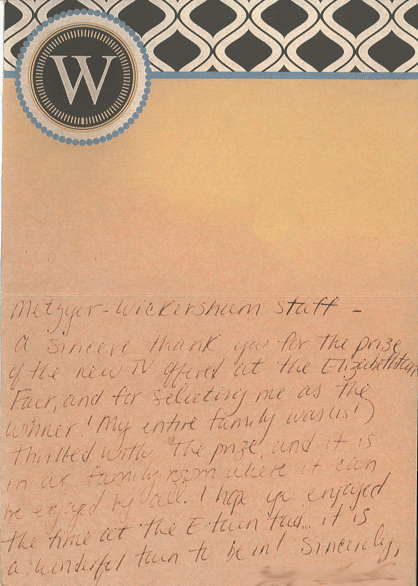 W
Metzger-Wickersham Staff -
A sincere thank you for the prize
of the new TV offered at the Elizabethtown
Fair, and for selecting me as the
winner! My entire family was (is!)
thrilled with the prize, and it is
in our family room where it can
be enjoyed by all. I hope you enjoyed
the time at the E-town fair... it is
a wonderful town to be in! Sincerely,